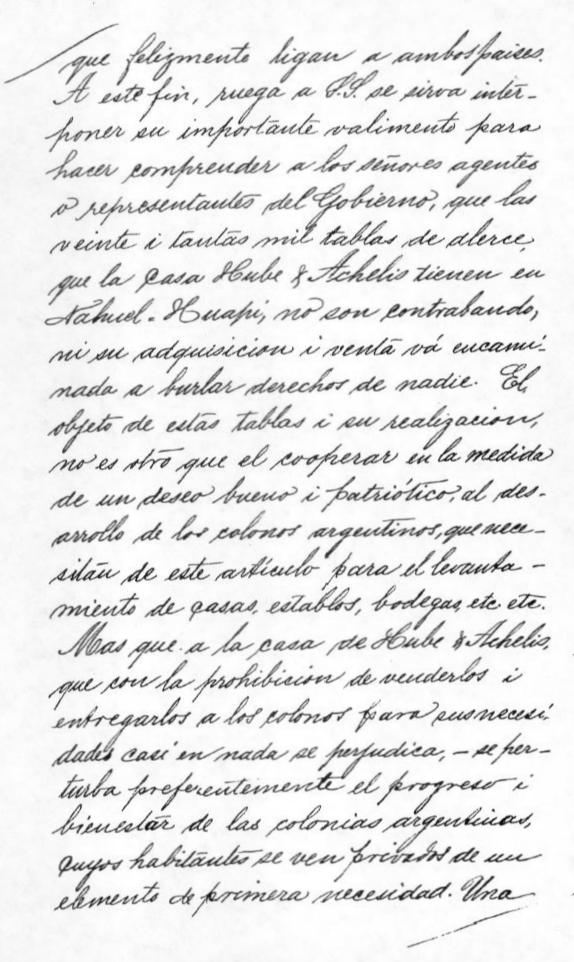 que felizmente ligan a ambos paises.
A este fin, ruega a S.S. se sirva inter-
poner su importante valimento para
hacer comprender a los señores agentes
o representantes del Gobierno, que las
veinte i tantas mil tablas de alerce,
que la casa Hube & Achelis tienen en
Nahuel-Huapi, no son contrabando,
ni su adquisicion i venta vá encami-
nada a burlar derechos de nadie. El
objeto de estas tablas i su realizacion,
no es otro que el cooperar en la medida
de un deseo bueno i patriótico, al des-
arrollo de los colonos argentinos, que nece-
sitan de este artículo para el levanta-
miento de casas, establos, bodegas, etc. etc.
Mas que a la casa de Hube & Achelis,
que con la prohibicion de venderlos i
entregarlos a los colonos para sus necesi-
dades casi en nada se perjudica, - se per-
turba preferentemente el progreso i
bienestar de las colonias argentinas,
cuyos habitantes se ven privados de un
elemento de primera necesidad. Una